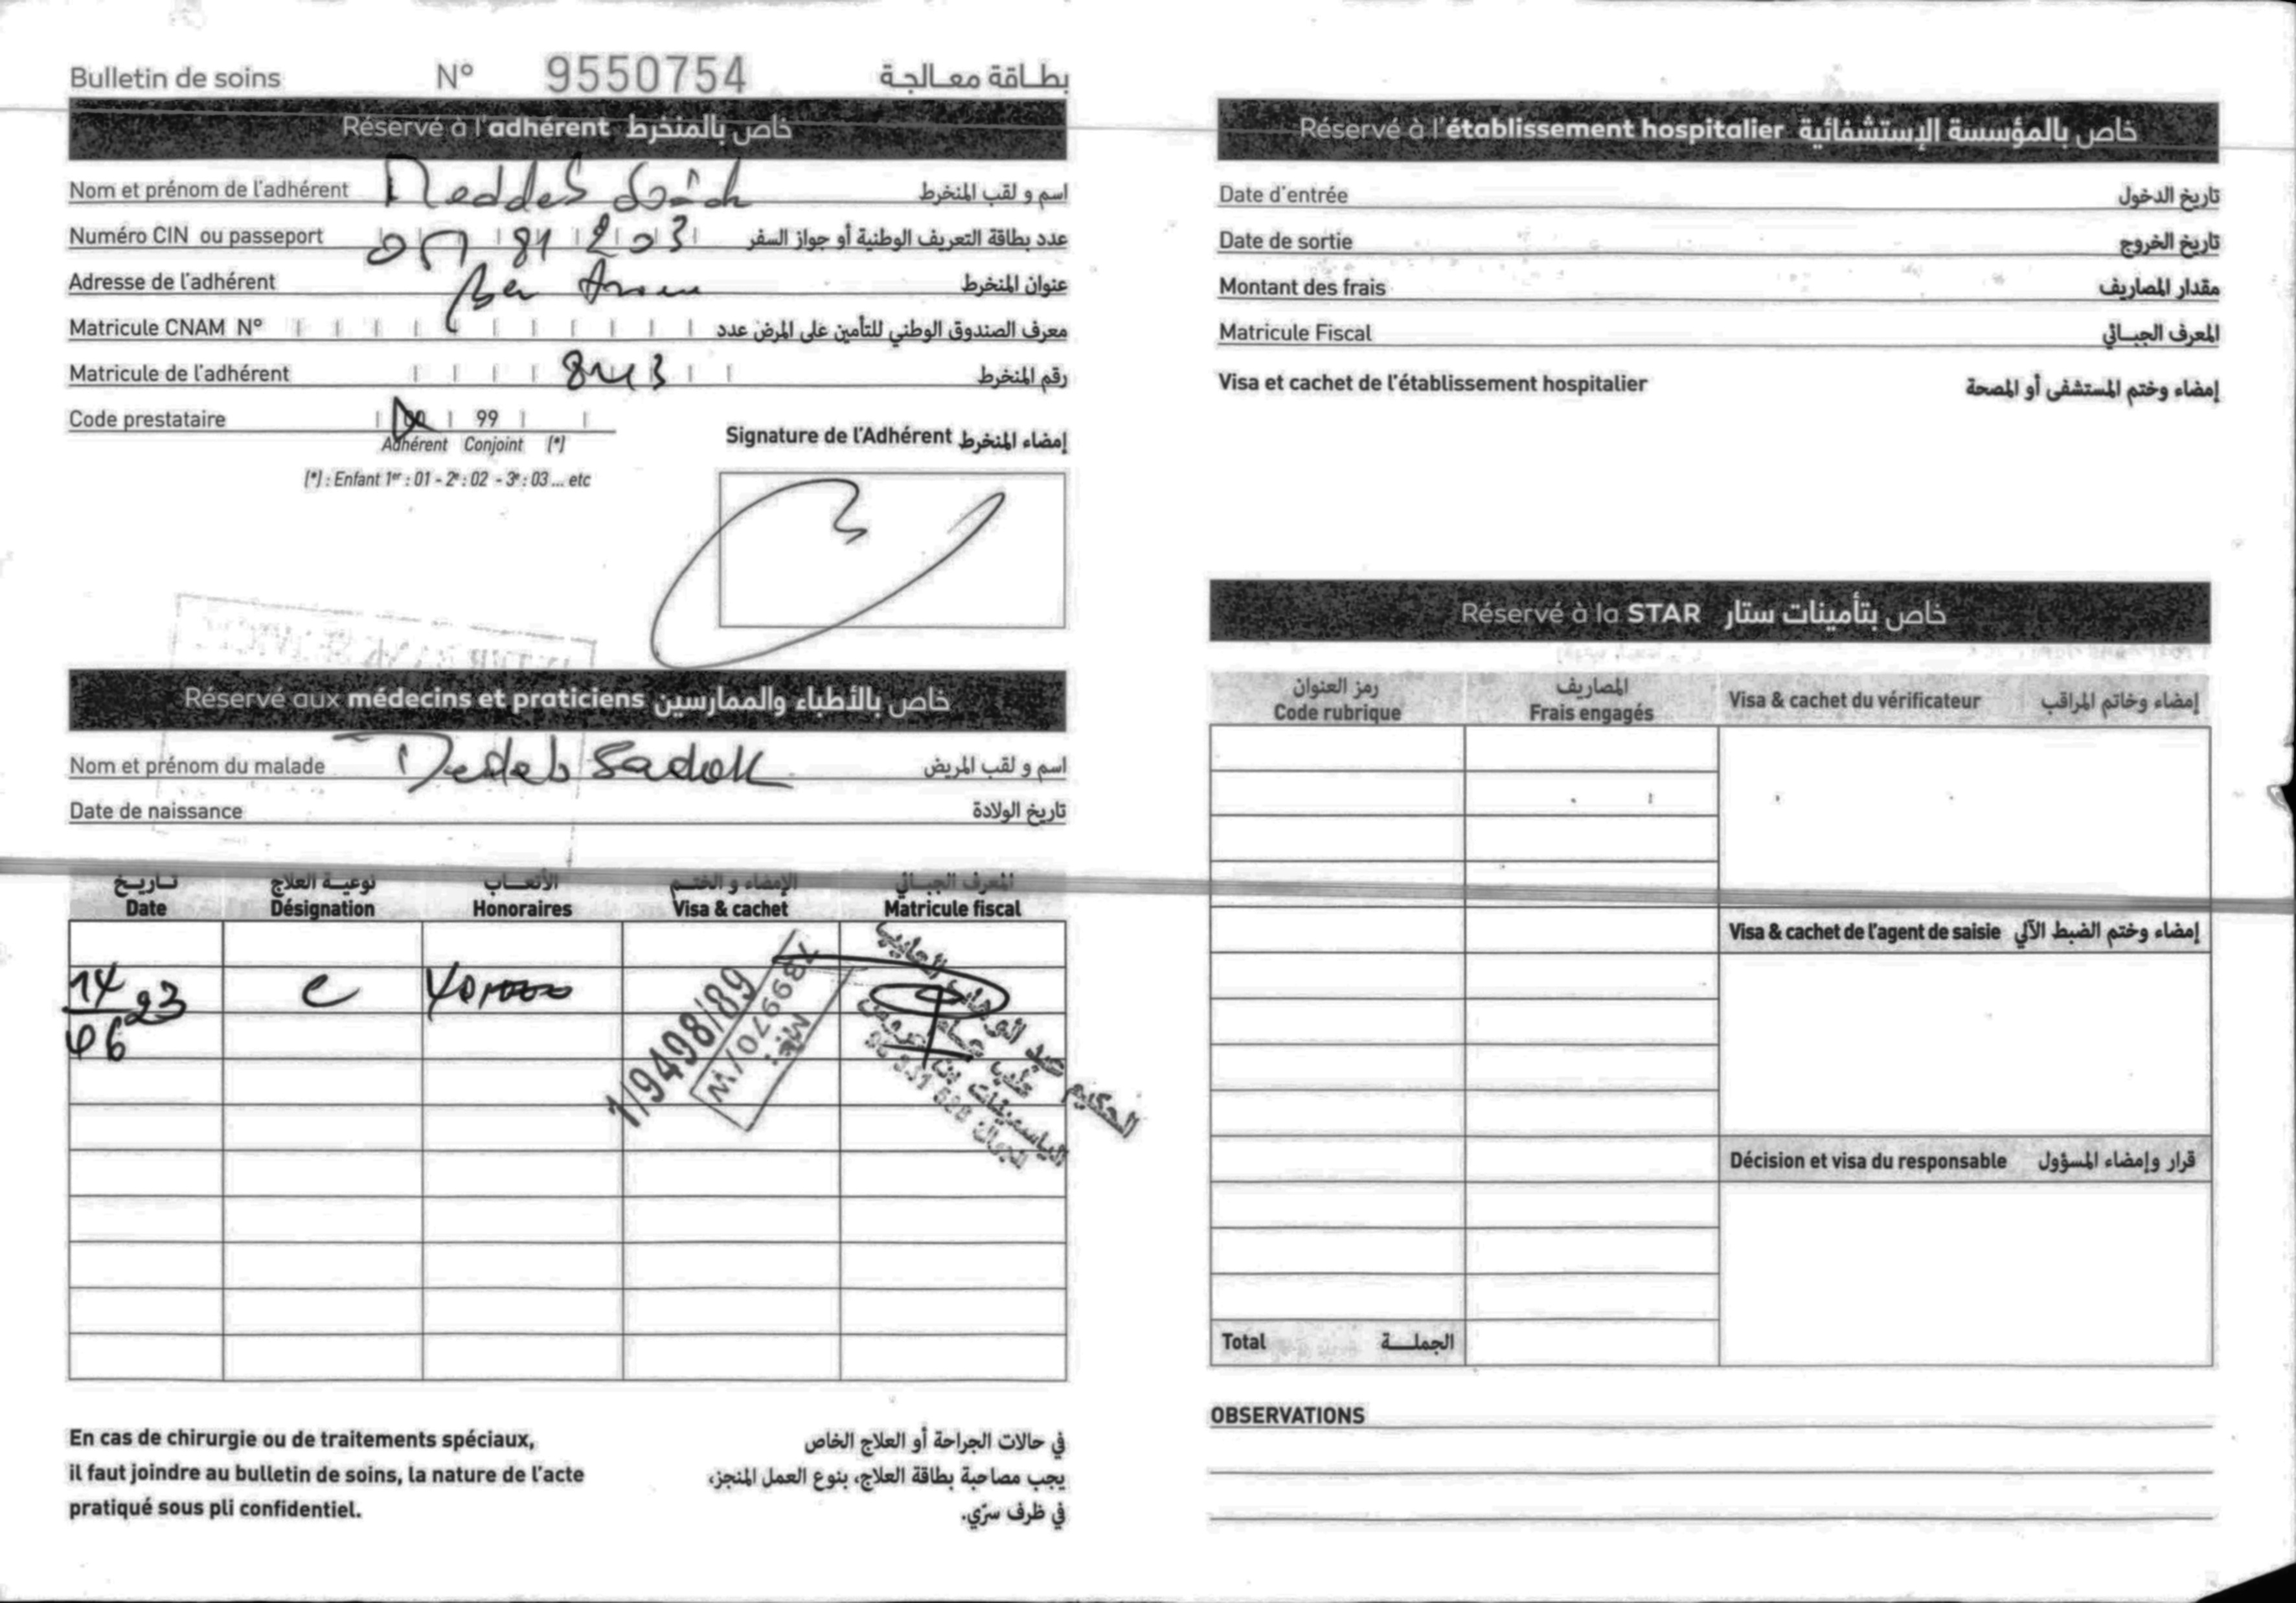 Bulletin de soins N° 9550754 بطاقة معالجة
Réservé à l'adhérent خاص بالمنخرط
Nom et prénom de l'adhérent اسم و لقب المنخرط
Numéro CIN ou passeport عدد بطاقة التعريف الوطنية أو جواز السفر
Adresse de l'adhérent Ben عنوان المنخرط
Matricule CNAM N° معرف الصندوق الوطني للتأمين على المرض عدد
Matricule de l'adhérent رقم المنخرط
Code prestataire 99
Adhérent Conjoint (*)
(*) : Enfant 1er : 01 - 2e : 02 - 3e : 03 ... etc
Signature de l'Adhérent إمضاء المنخرط
Réservé aux médecins et praticiens خاص بالأطباء والممارسين
Nom et prénom du malade Deddeb Sadok اسم و لقب المريض
Date de naissance تاريخ الولادة
تاريخ نوعية العلاج الأتعاب الإمضاء و الختم المعرف الجبائي
Date Désignation Honoraires Visa & cachet Matricule fiscal
14 23 c
06
1/9498/89
En cas de chirurgie ou de traitements spéciaux,
il faut joindre au bulletin de soins, la nature de l'acte
pratiqué sous pli confidentiel.
في حالات الجراحة أو العلاج الخاص
يجب مصاحبة بطاقة العلاج، بنوع العمل المنجز،
في ظرف سرّي.
Réservé à l'établissement hospitalier خاص بالمؤسسة الإستشفائية
Date d'entrée تاريخ الدخول
Date de sortie تاريخ الخروج
Montant des frais مقدار المصاريف
Matricule Fiscal المعرف الجبائي
Visa et cachet de l'établissement hospitalier إمضاء وختم المستشفى أو المصحة
Réservé à la STAR خاص بتأمينات ستار
رمز العنوان المصاريف
Code rubrique Frais engagés Visa & cachet du vérificateur إمضاء وخاتم المراقب
Visa & cachet de l'agent de saisie إمضاء وختم الضبط الآلي
Décision et visa du responsable قرار وإمضاء المسؤول
Total الجملة
OBSERVATIONS